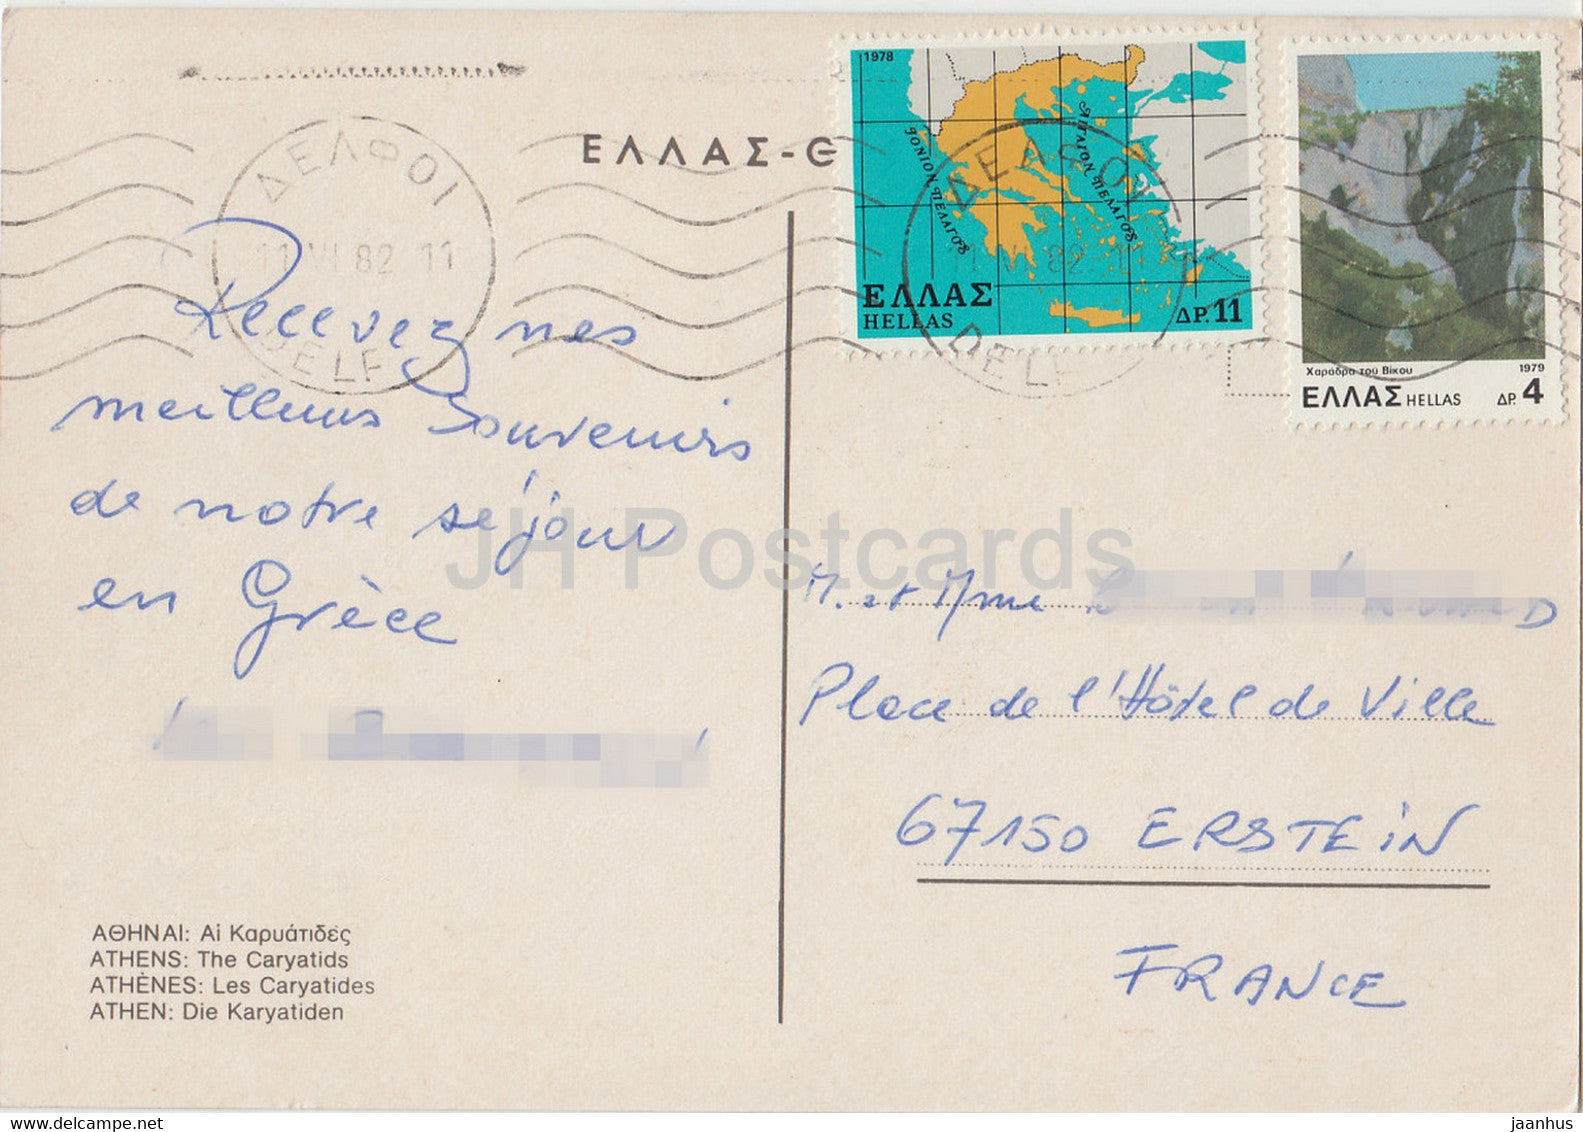 ΕΛΛΑΣ-G
ΔΕΛΦΟΙ
11 VI 82 11
DELF
1978
ΙΟΝΙΟΝ ΠΕΛΑΓΟΣ
ΑΙΓΑΙΟΝ ΠΕΛΑΓΟΣ
ΕΛΛΑΣ
HELLAS
ΔΡ. 11
ΔΕΛΦΟΙ
11 VI 82 11
DELF
Χαράδρα τοῦ Βίκου 1979
ΕΛΛΑΣ HELLAS ΔΡ. 4
Recevez nos
meilleurs souvenirs
de notre séjour
en Grèce
JH Postcards
M. et Mme
Place de l'Hôtel de Ville
67150 ERSTEIN
FRANCE
ΑΘΗΝΑΙ: Αἱ Καρυάτιδες
ATHENS: The Caryatids
ATHÈNES: Les Caryatides
ATHEN: Die Karyatiden
www.delcampe.net
jaanhus